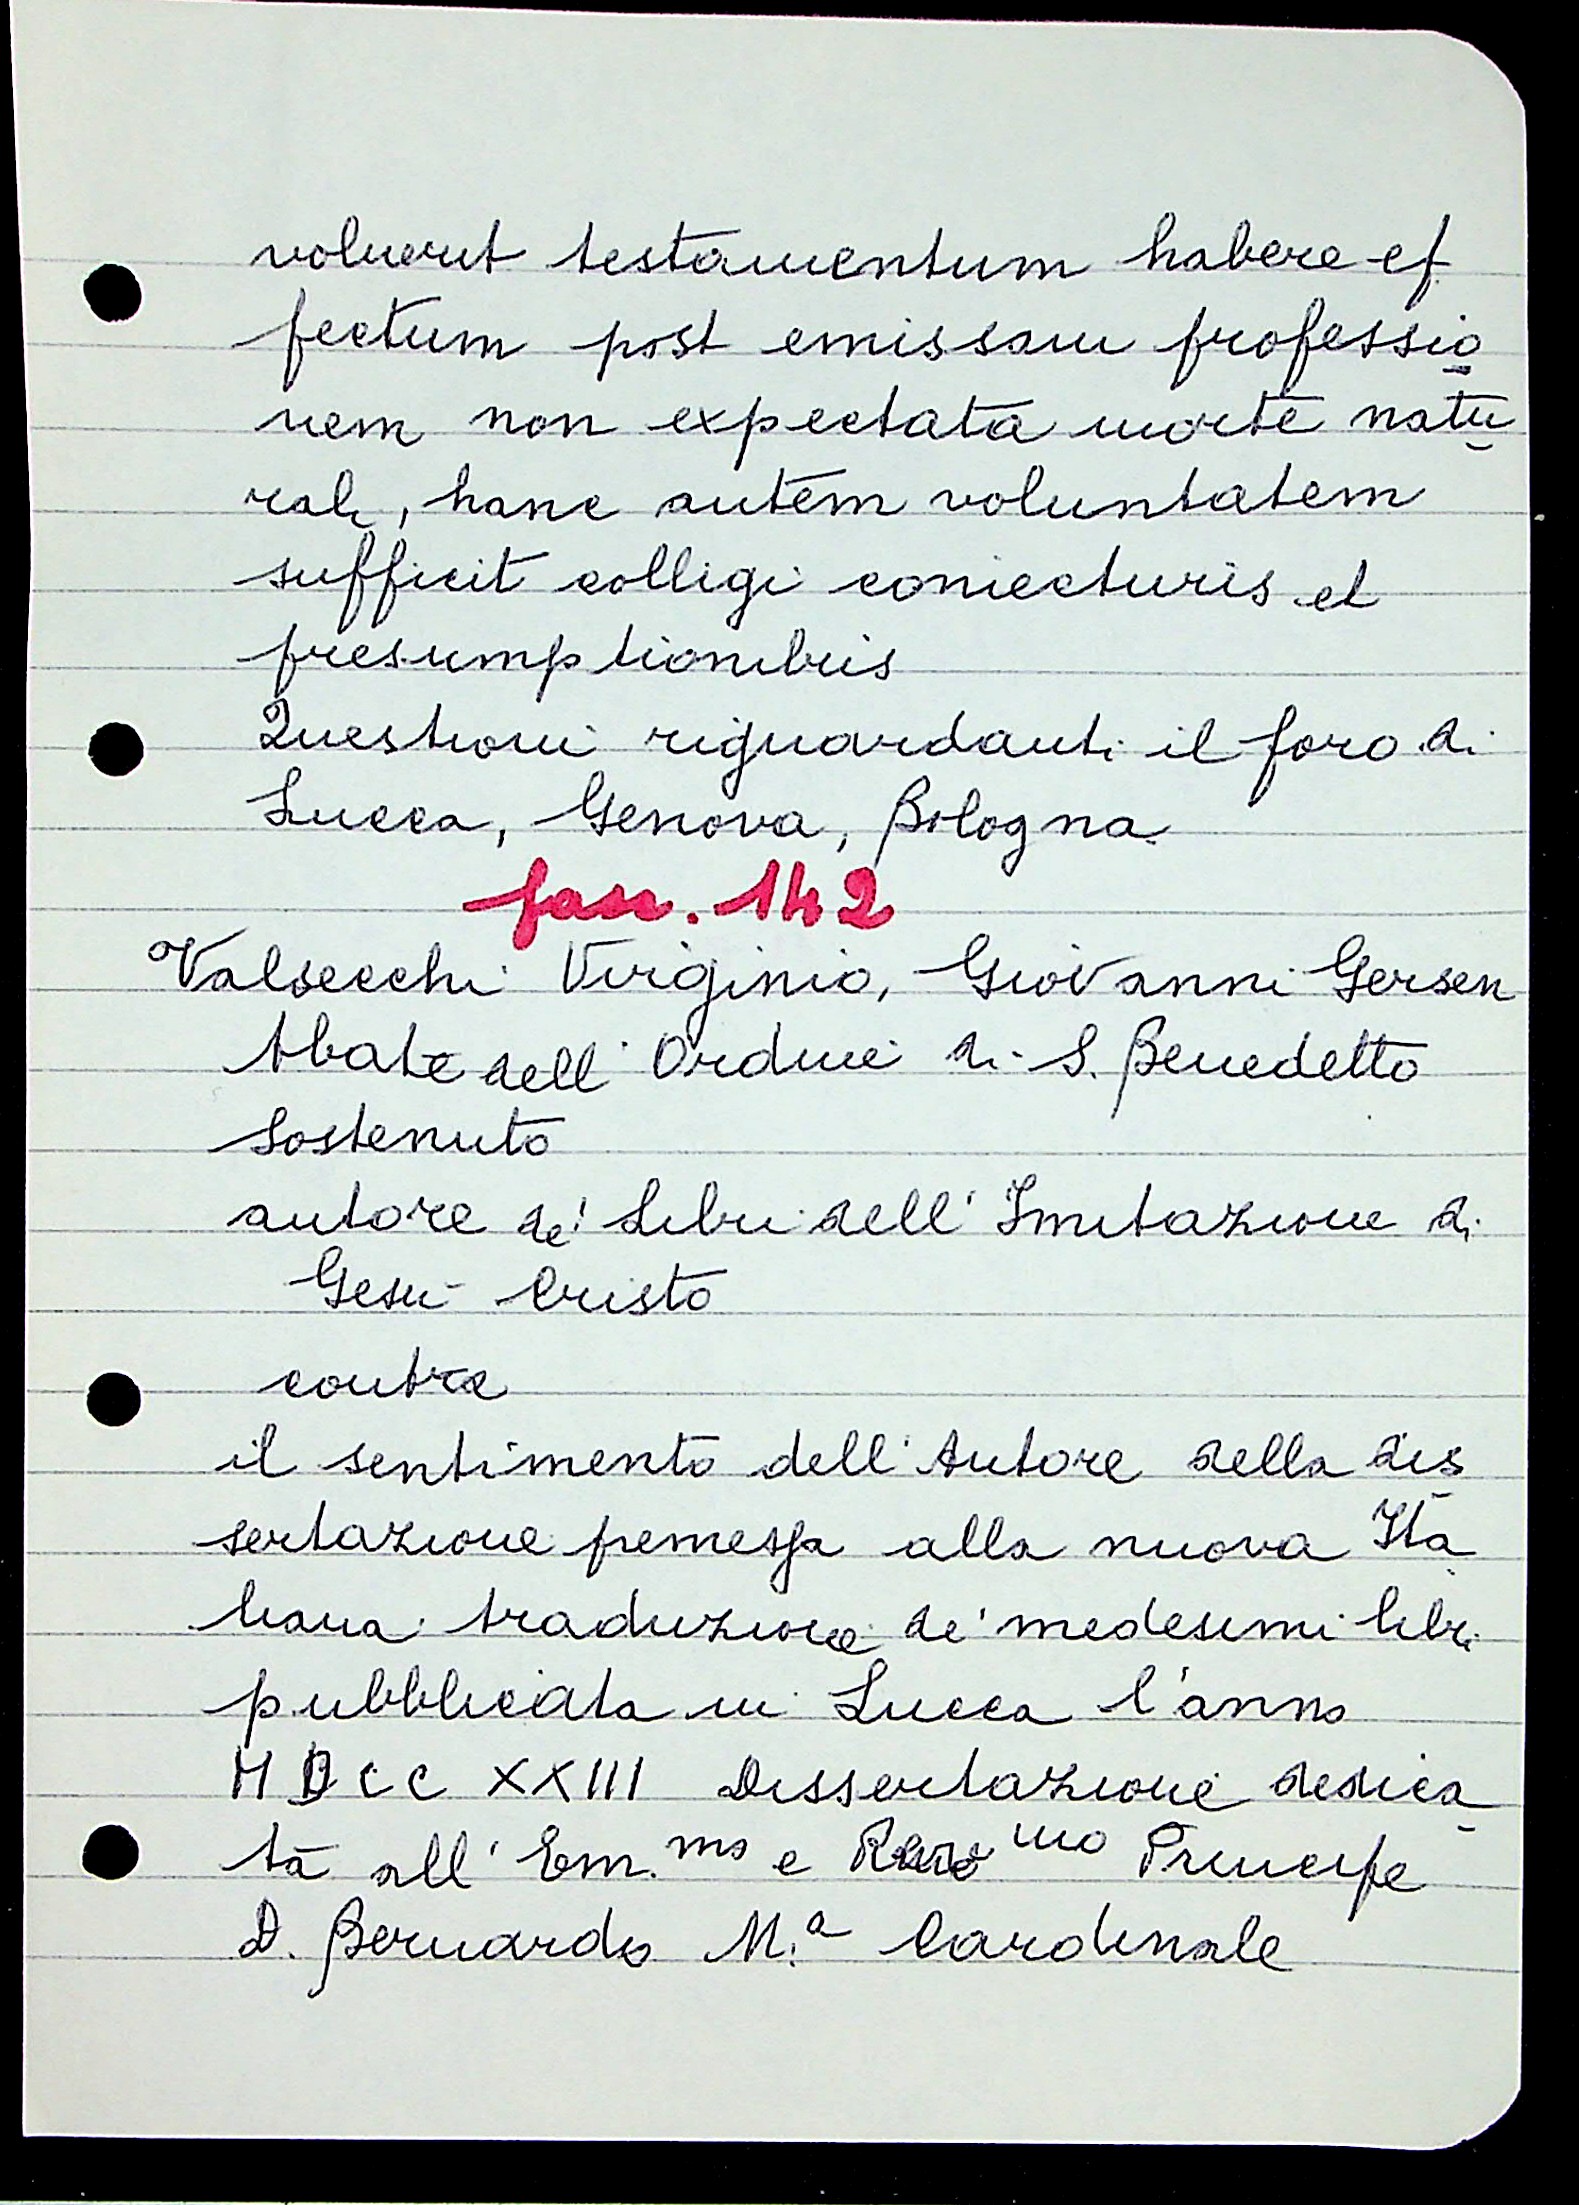 voluerit testamentum habere ef
fectum post emissam professio
nem non expectata morte natu
rali, hanc autem voluntatem
sufficit colligi coniecturis et
presumptionibus
Questioni riguardanti il foro di
Lucca, Genova, Bologna
fasc. 142
Valsecchi Virginio, Giovanni Gersen
Abate dell'Ordine di S. Benedetto
sostenuto
autore de' Libri dell'Imitazione di
Gesù Cristo
contra
il sentimento dell'Autore della dis
sertazione premessa alla nuova Ita
liana traduzione de' medesimi libri
pubblicata in Lucca l'anno
MDCCXXIII Dissertazione dedica
ta all'Em.mo e Rev mo Principe
D. Bernardo M.a Cardinale